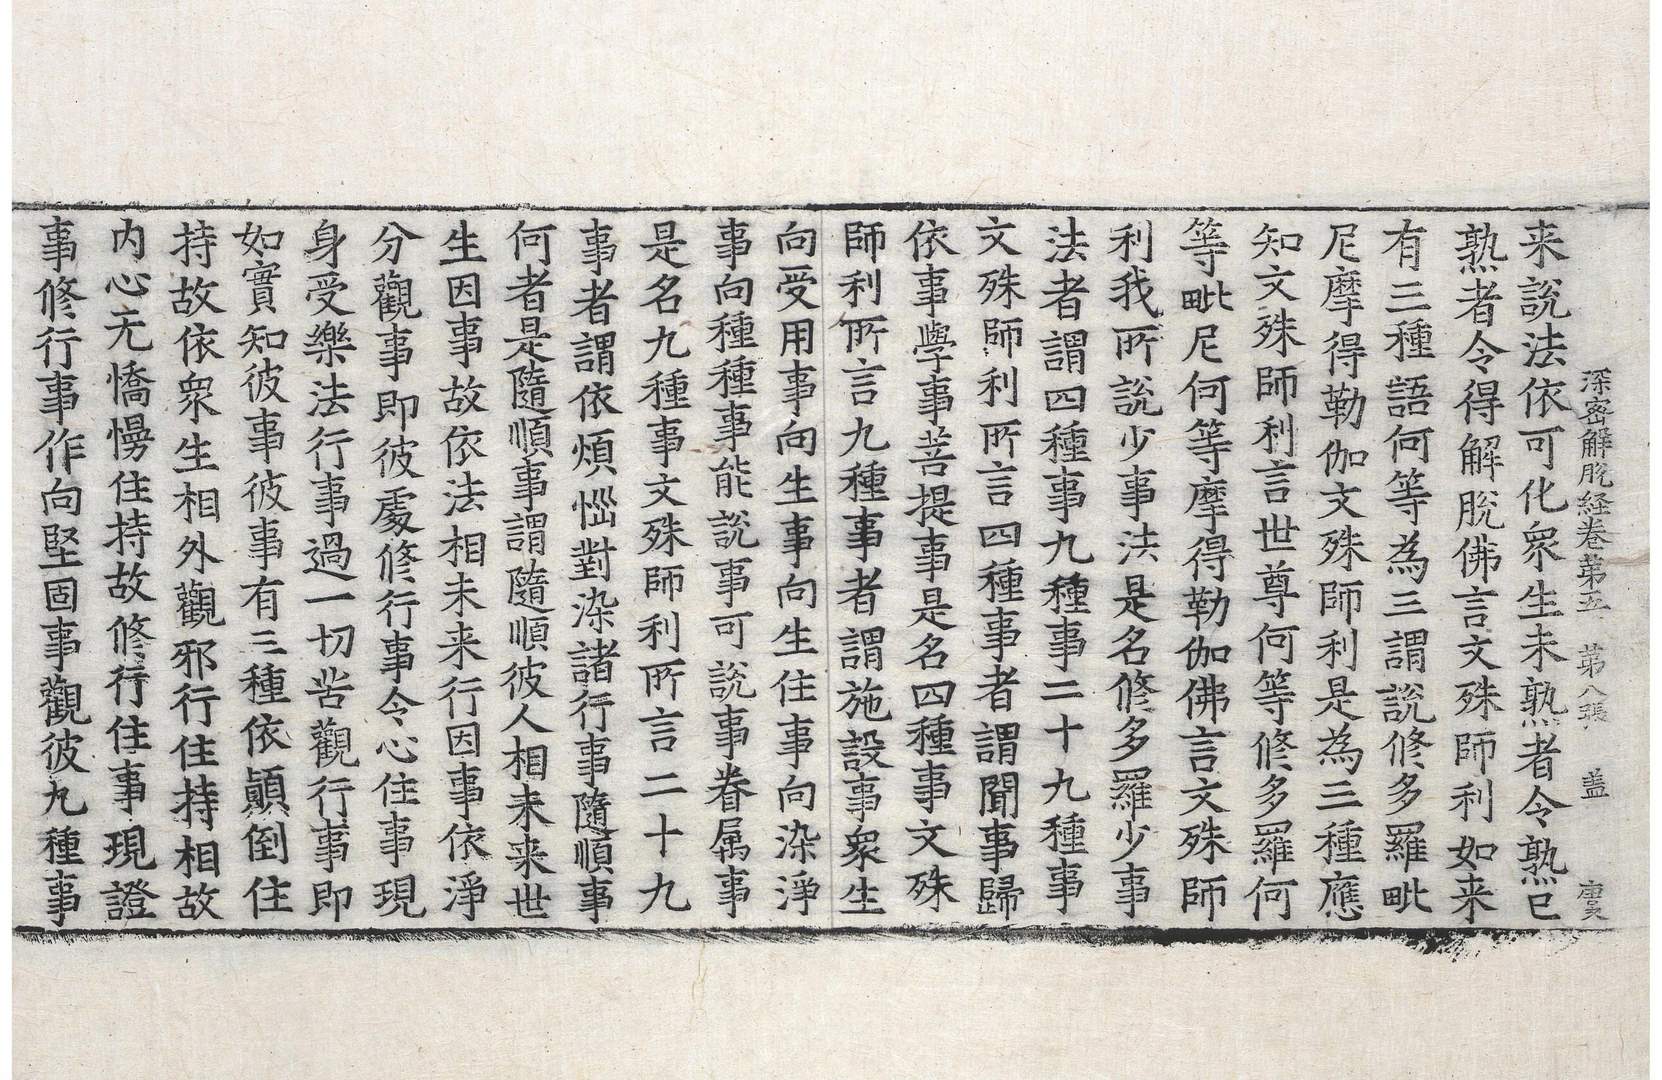 深密解脫経卷第五 第八張 盖
来說法依可化衆生未熟者令熟已
熟者令得解脫佛言文殊師利如来
有三種語何等為三謂說修多羅毗
尼摩得勒伽文殊師利是為三種應
知文殊師利言世尊何等修多羅何
等毗尼何等摩得勒伽佛言文殊師
利我所說少事法是名修多羅少事
法者謂四種事九種事二十九種事
文殊師利所言四種事者謂聞事歸
依事學事菩提事是名四種事文殊
師利所言九種事者謂施設事衆生
向受用事向生事向生住事向染淨
事向種種事能說事可說事眷属事
是名九種事文殊師利所言二十九
事者謂依煩惱對染諸行事隨順事
何者是隨順事謂隨順彼人相未来世
生因事故依法相未来行因事依淨
分觀事即彼處修行事令心住事現
身受樂法行事過一切苦觀行事即
如實知彼事彼事有三種依顛倒住
持故依衆生相外觀邪行住持相故
内心无憍慢住持故修行住事現證
事修行事作向堅固事觀彼九種事